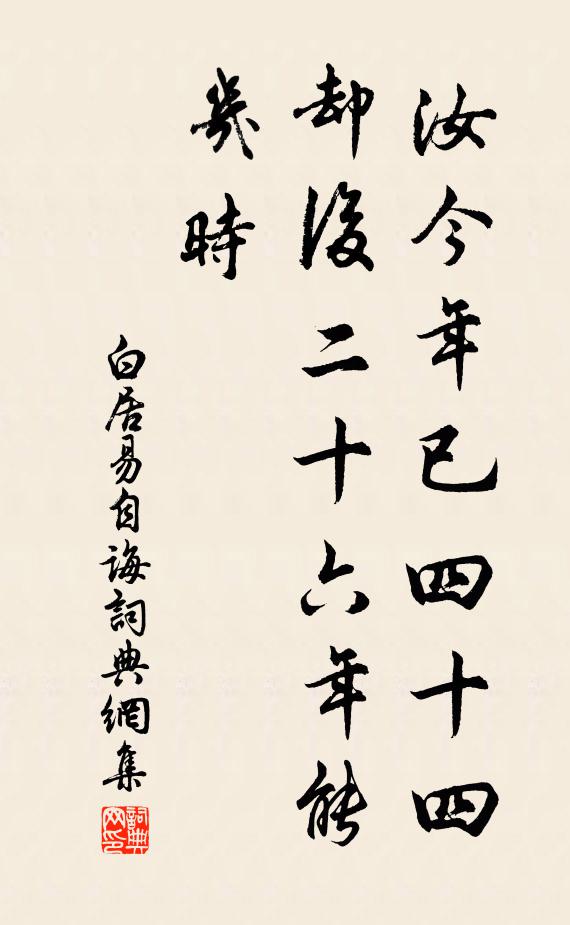 汝今年已四十四
却後二十六年能
幾時
白居易自誨詞典網集
詞典網印